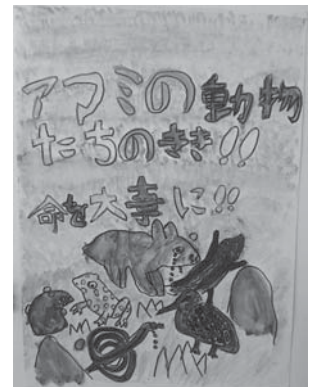 アマミの動物
たちのきき!!
命を大事に!!